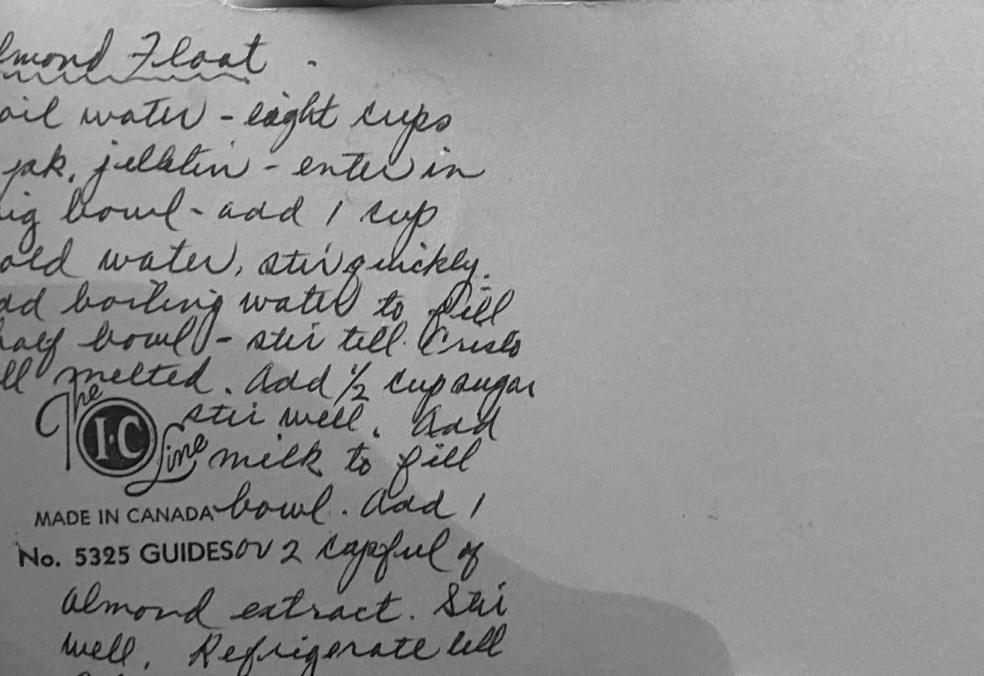 lmond Float .
oil water - eight cups
pk. jellatin - enter in
ig bowl - add 1 cup
old water, stir quickly.
dd boiling water to fill
half bowl - stir till
ll melted. Add 1/2 cup sugar
The
I-C
Line
stir well. Add
milk to fill
MADE IN CANADA bowl. Add 1
No. 5325 GUIDES or 2 capful of
almond extract. Stir
well. Refrigerate till